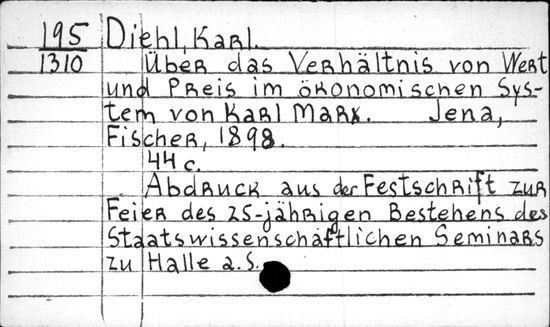 195 Diehl, Karl.
1310 Über das Verhältnis von Wert
und Preis im ökonomischen Sys-
tem von Karl Marx. Jena,
Fischer, 1898.
44 c.
Abdruck aus der Festschrift zur
Feier des 25-jährigen Bestehens des
Staatswissenschaftlichen Seminars
zu Halle a. S.